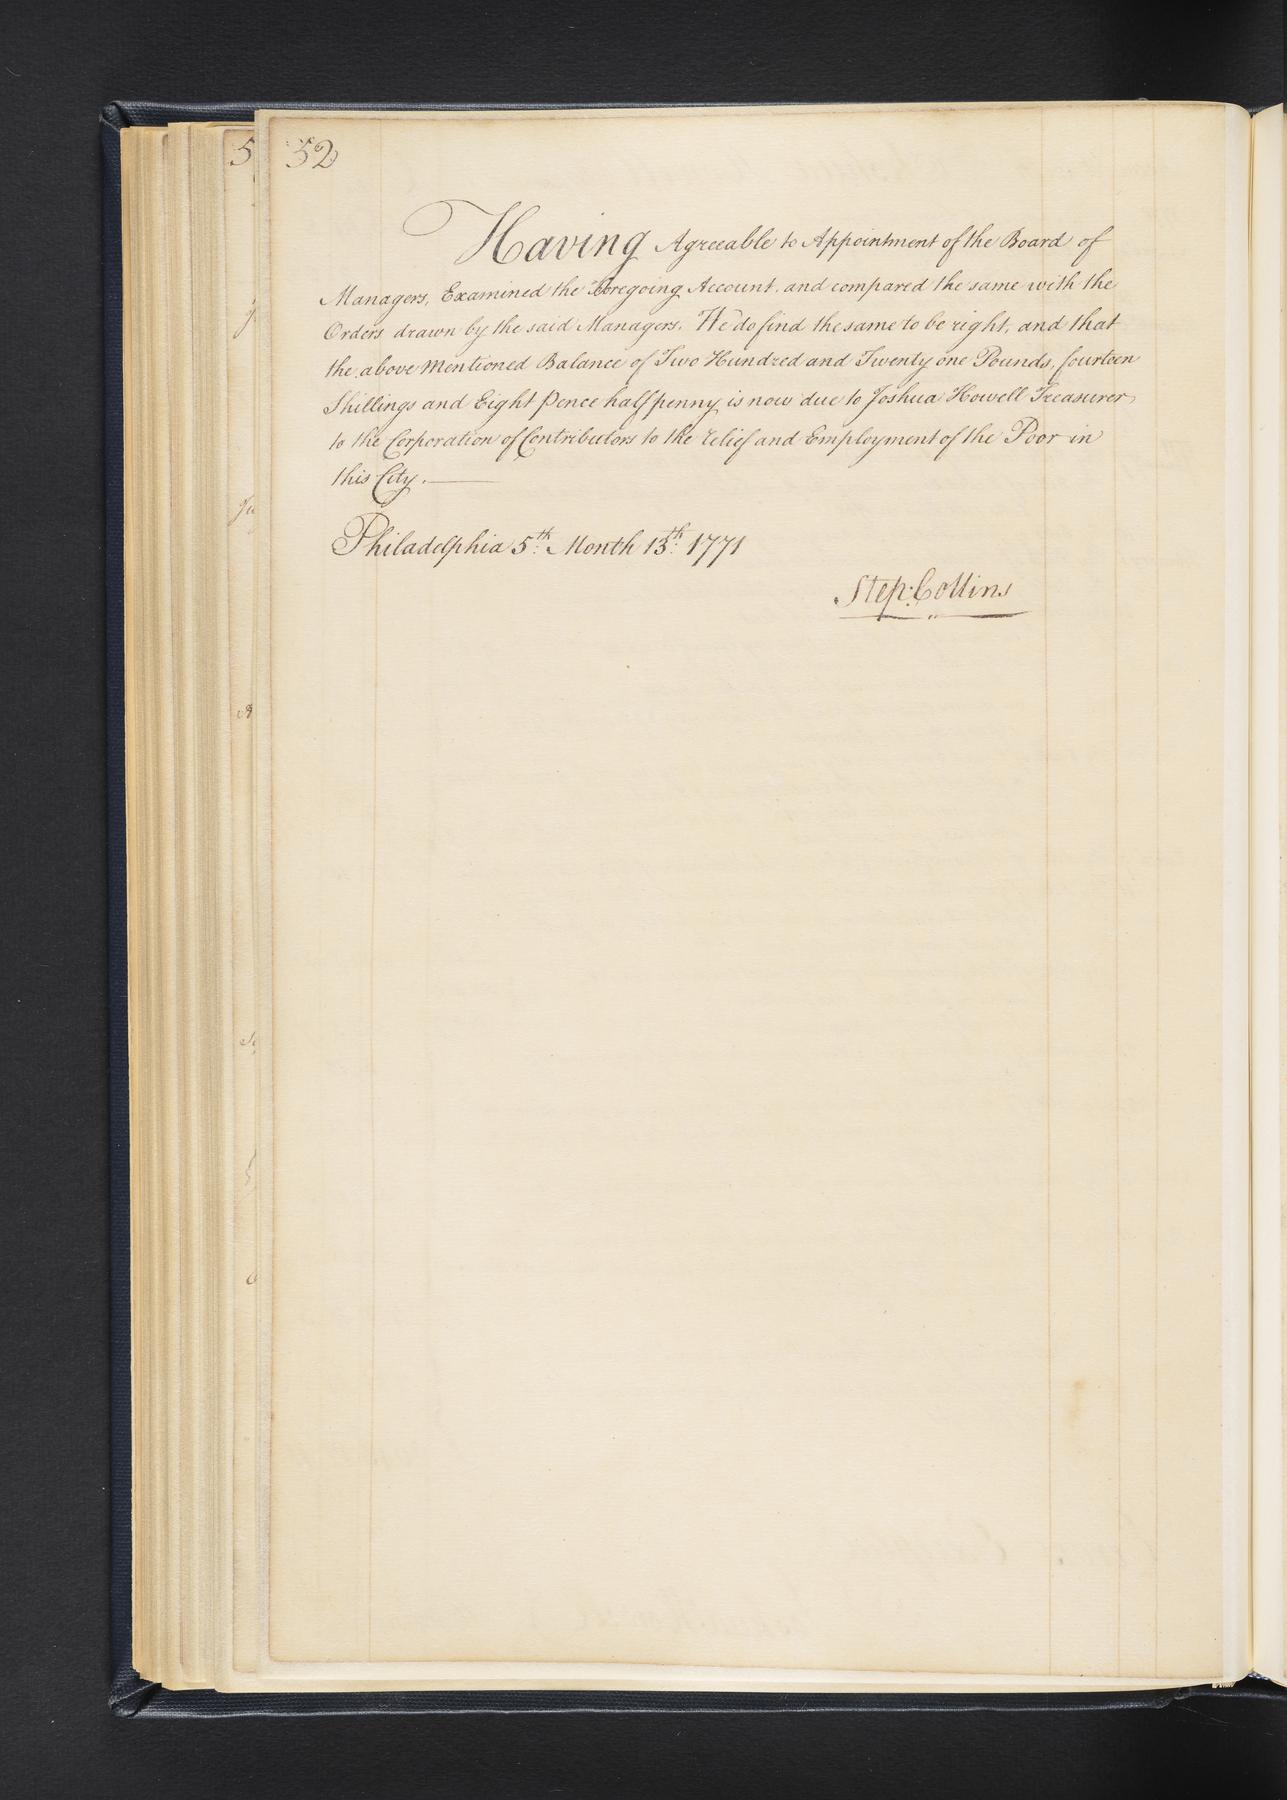 52
Having Agreeable to Appointment of the Board of
Managers, Examined the foregoing Account, and compared the same with the
Orders drawn by the said Managers. We do find the same to be right, and that
the above Mentioned Balance of Two Hundred and Twenty one Pounds, fourteen
Shillings and Eight Pence halfpenny is now due to Joshua Howell Treasurer
to the Corporation of Contributors to the relief and Employment of the Poor in
this City.
Philadelphia 5th Month 13th 1771
Step: Collins